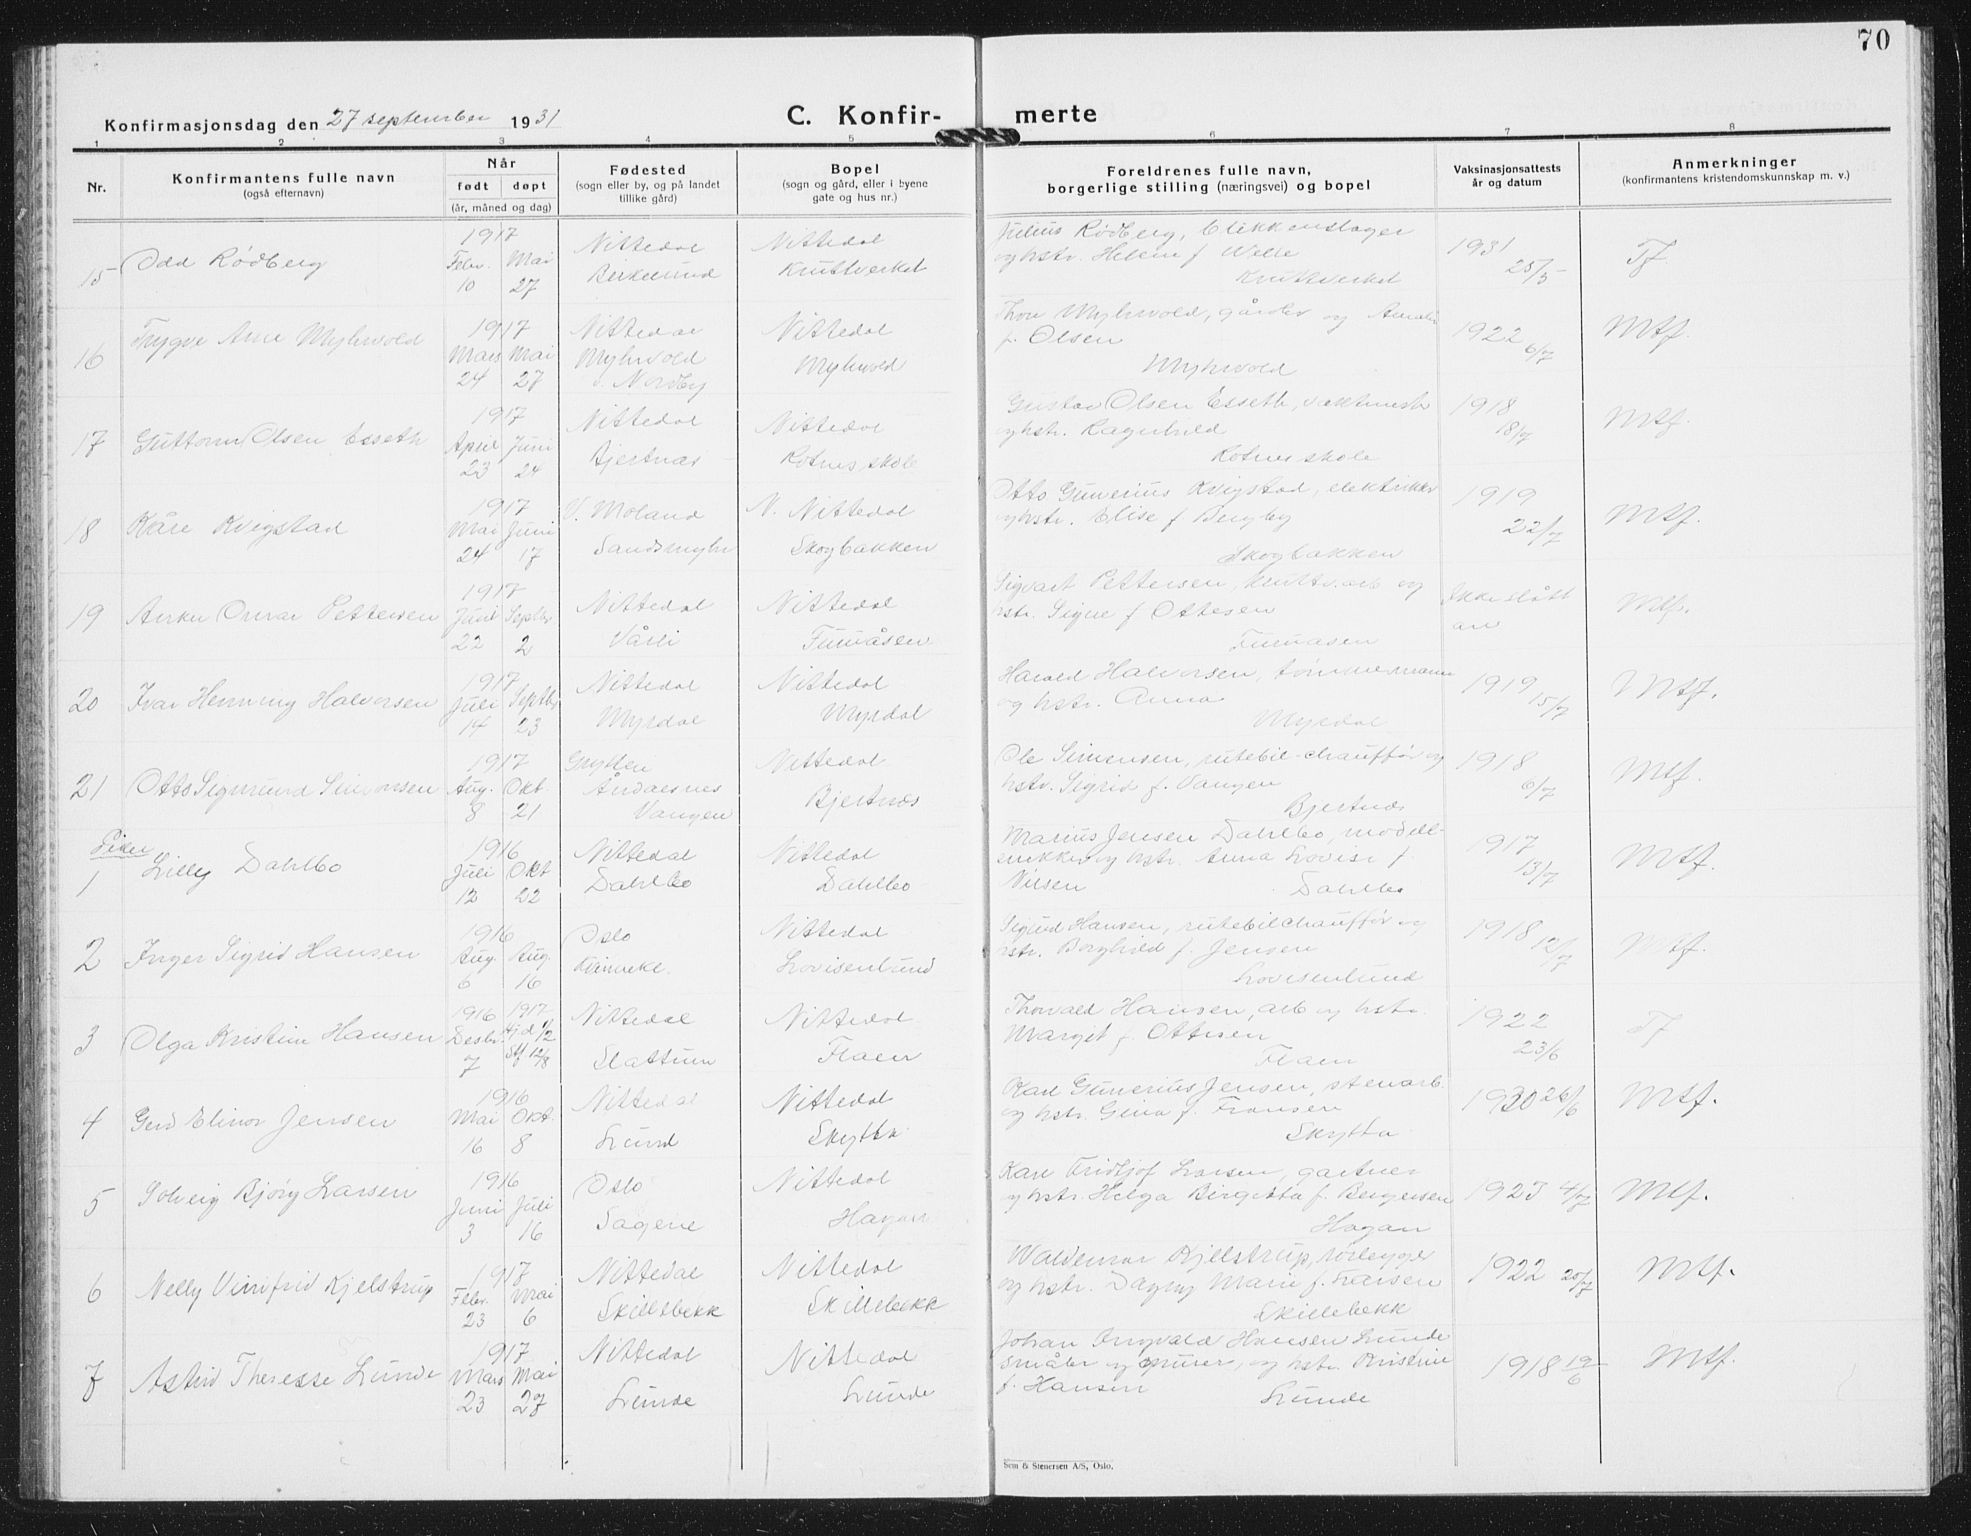 70
Konfirmasjonsdag den 27 september 1931
C. Konfir- merte
1 2 3 4 5 6 7 8
Nr.
Konfirmantens fulle navn
(også efternavn)
Når
født døpt
(år, måned og dag)
Fødested
(sogn eller by, og på landet
tillike gård)
Bopel
(sogn og gård, eller i byene
gate og hus nr.)
Foreldrenes fulle navn,
borgerlige stilling (næringsvei) og bopel
Vaksinasjonsattests
år og datum
Anmerkninger
(konfirmantens kristendomskunnskap m. v.)
15 Odd Rödberg 1917 Febr. 10 Mai 27 Nittedal Birkelund Nittedal Kruttverket
Julius Rödberg, blikkenslager
og hstr. Helene f Welle
Kruttverket
1931 25/5 Tf
16 Trygve Arne Myhrvold 1917 Mars 24 Mai 27 Nittedal Myhrvold v. Nordby Nittedal Myhrvold
Thor Myhrvold, gårdbr og
f. Olsen
Myhrvold
1922 6/7 Mtf.
17 Guttorm Olsen Esseth 1917 April 23 Juni 24 Nittedal Bjertnæs Nittedal Rotnes skole
Gustav Olsen Esseth, vaktmestr
og hstr. Ragnhild
Rotnes skole
1918 18/7 Mtf.
18 Kåre Kvigstad 1917 Mai 24 Juni 17 V. Moland Sandsmyhr N. Nittedal Skogbakken
Otto Gunerius Kvigstad, elektriker
og hstr. Elise f Bergby
Skogbakken
1919 22/7 Mtf.
19 Anker Omar Pettersen 1917 Juni 22 Septbr 2 Nittedal Vårli Nittedal Furuåsen
Sigvart Pettersen, kruttv.arb og
hstr. Signe f Ottesen
Furuåsen
Ikke slått an Mtf.
20 Ivar Henning Halvorsen 1917 Juli 14 Septbr 23 Nittedal Myrdal Nittedal Myrdal
Harald Halvorsen, tømmermann
og hstr. Anna
Myrdal
1919 15/7 Mtf.
21 Otto Sigmund Simensen 1917 Aug. 8 Okt. 21 Grytten Åndalsnes Vangen Nittedal Bjertnæs
Ole Simensen, rutebil-chauffør og
hstr. Sigrid f. Vangen
Bjertnæs
1918 6/7 Mtf.
Piker
1 Lilly Dahlbo 1916 Juli 12 Okt 22 Nittedal Dahlbo Nittedal Dahlbo
Marius Jensen Dahlbo, modell-
snikker og hstr. Anna Lovise f.
Nilsen Dahlbo
1917 13/7 Mtf.
2 Inger Sigrid Hansen 1916 Aug. 6 Aug. 16 Oslo Nittedal Lovisenlund
Sigurd Hansen, rutebilchauffør og
hstr. Borghild f. Jensen
Lovisenlund
1918 12/7 Mtf.
3 Olga Kristine Hansen 1916 Desbr. 7 1917 Hj.d 1/2 Stf 12/8 Nittedal Slattum Nittedal Flaen
Thorvald Hansen, arb og hstr.
Margit f. Ottesen
Flaen
1922 23/6 Tf
4 Gerd Elinor Jensen 1916 Mai 16 Okt. 8 Nittedal Lund Nittedal Skytta
Karl Gunerius Jensen, stenarb.
og hstr. Gina f. Fransen
Skytta
1930 26/6 Mtf.
5 Solveig Bjørg Larsen 1916 Juni 3 Juli 16 Oslo Sagene Nittedal Hagan
Karl Fridtjof Larsen, gartner
og hstr. Helga Birgitta f. Bengersen
Hagan
1923 4/7 Mtf.
6 Nelly Vinifrid Kjelstrup 1917 Febr. 23 Mai 6 Nittedal Skillebekk Nittedal Skillebekk
Waldemar Kjelstrup, rørlegger
og hstr. Dagny Marie f. Larsen
Skillebekk
1922 20/7 Mtf.
7 Astrid Therese Lunde 1917 Mars 23 Mai 27 Nittedal Lunde Nittedal Lunde
Johan Ingvald Hansen Lunde
småbr og murer, og hstr. Kristine
f. Hansen Lunde
1918 19/6 Mtf.
Sem & Stenersen A/S, Oslo.